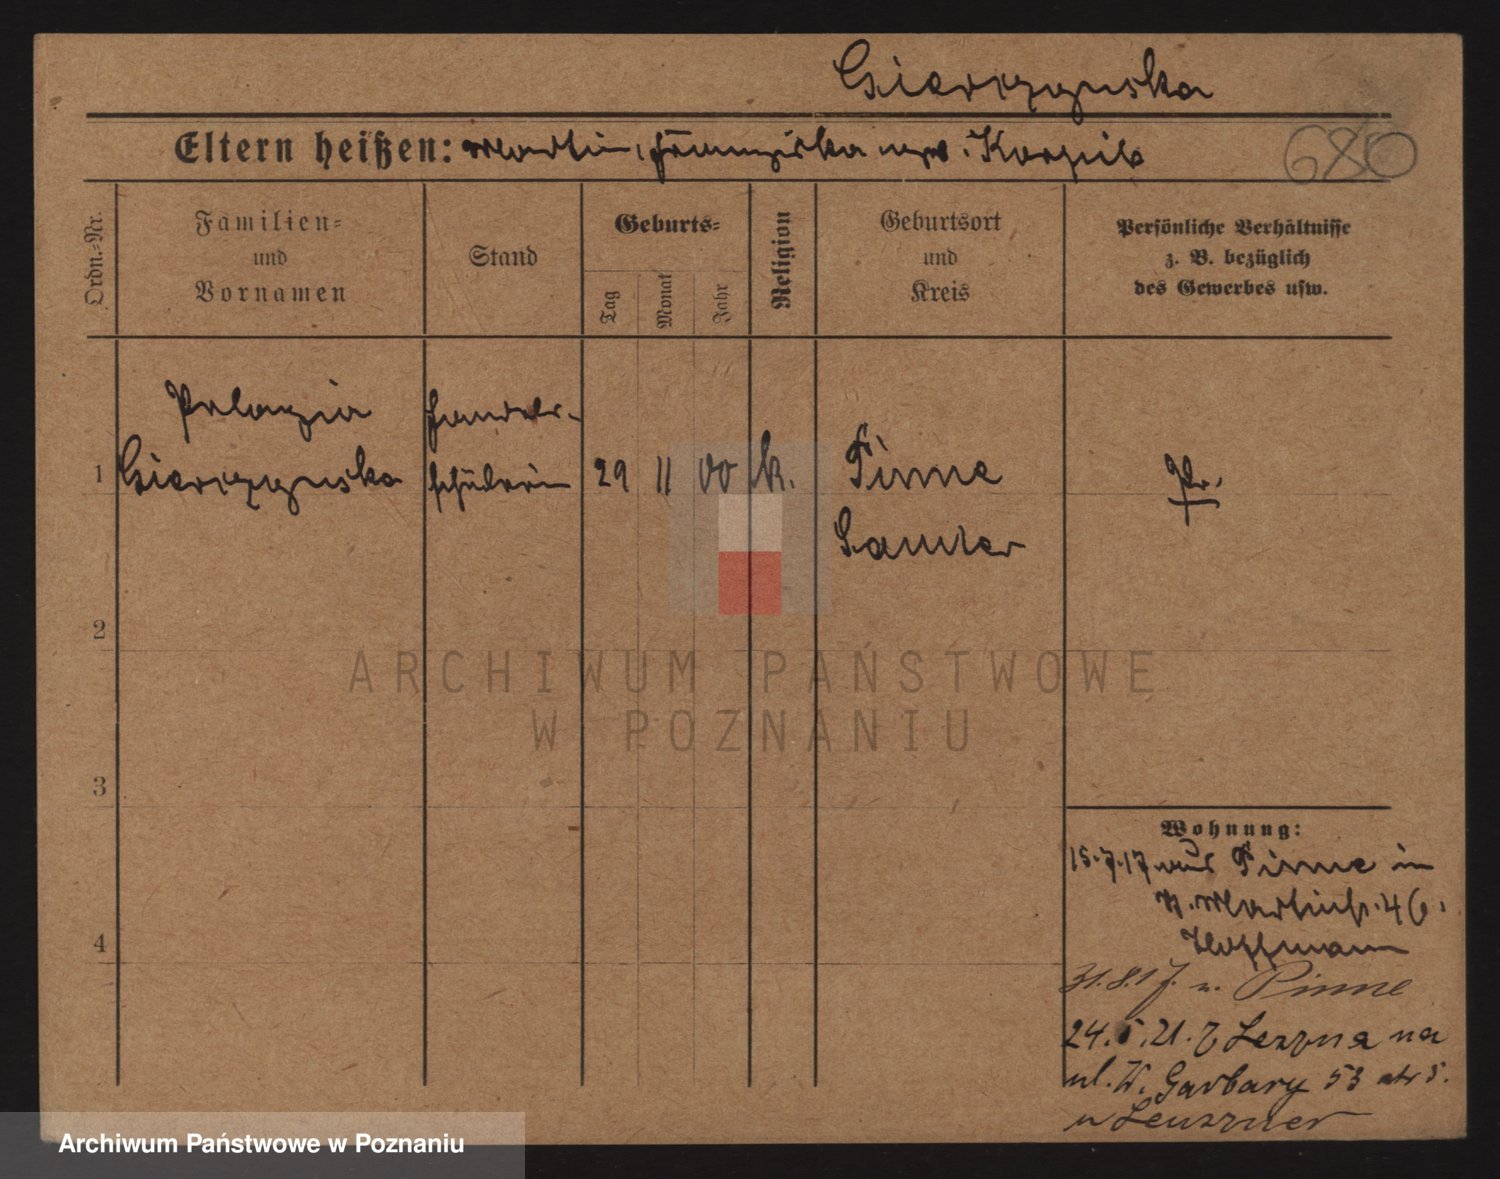 Gierczynska
Eltern heißen: Martin, Franziska
680
Ordn.-Nr.
Familien-
und
Vornamen
Stand
Geburts-
Tag
Monat
Jahr
Religion
Geburtsort
und
Kreis
Persönliche Verhältnisse
z. B. bezüglich
des Gewerbes usw.
Pelagia
Handels-
1 Gierczynska schülerin 29 11 00 k. Pinne Pr.
Samter
2
3
4
Wohnung:
15.7.17 aus Pinne in
Martinstr. 46.
Hoffmann
31.8.17. n. Pinne
24.5.21. z Leszna na
ul. W. Garbary 53
u
ARCHIWUM PAŃSTWOWE
W POZNANIU
Archiwum Państwowe w Poznaniu